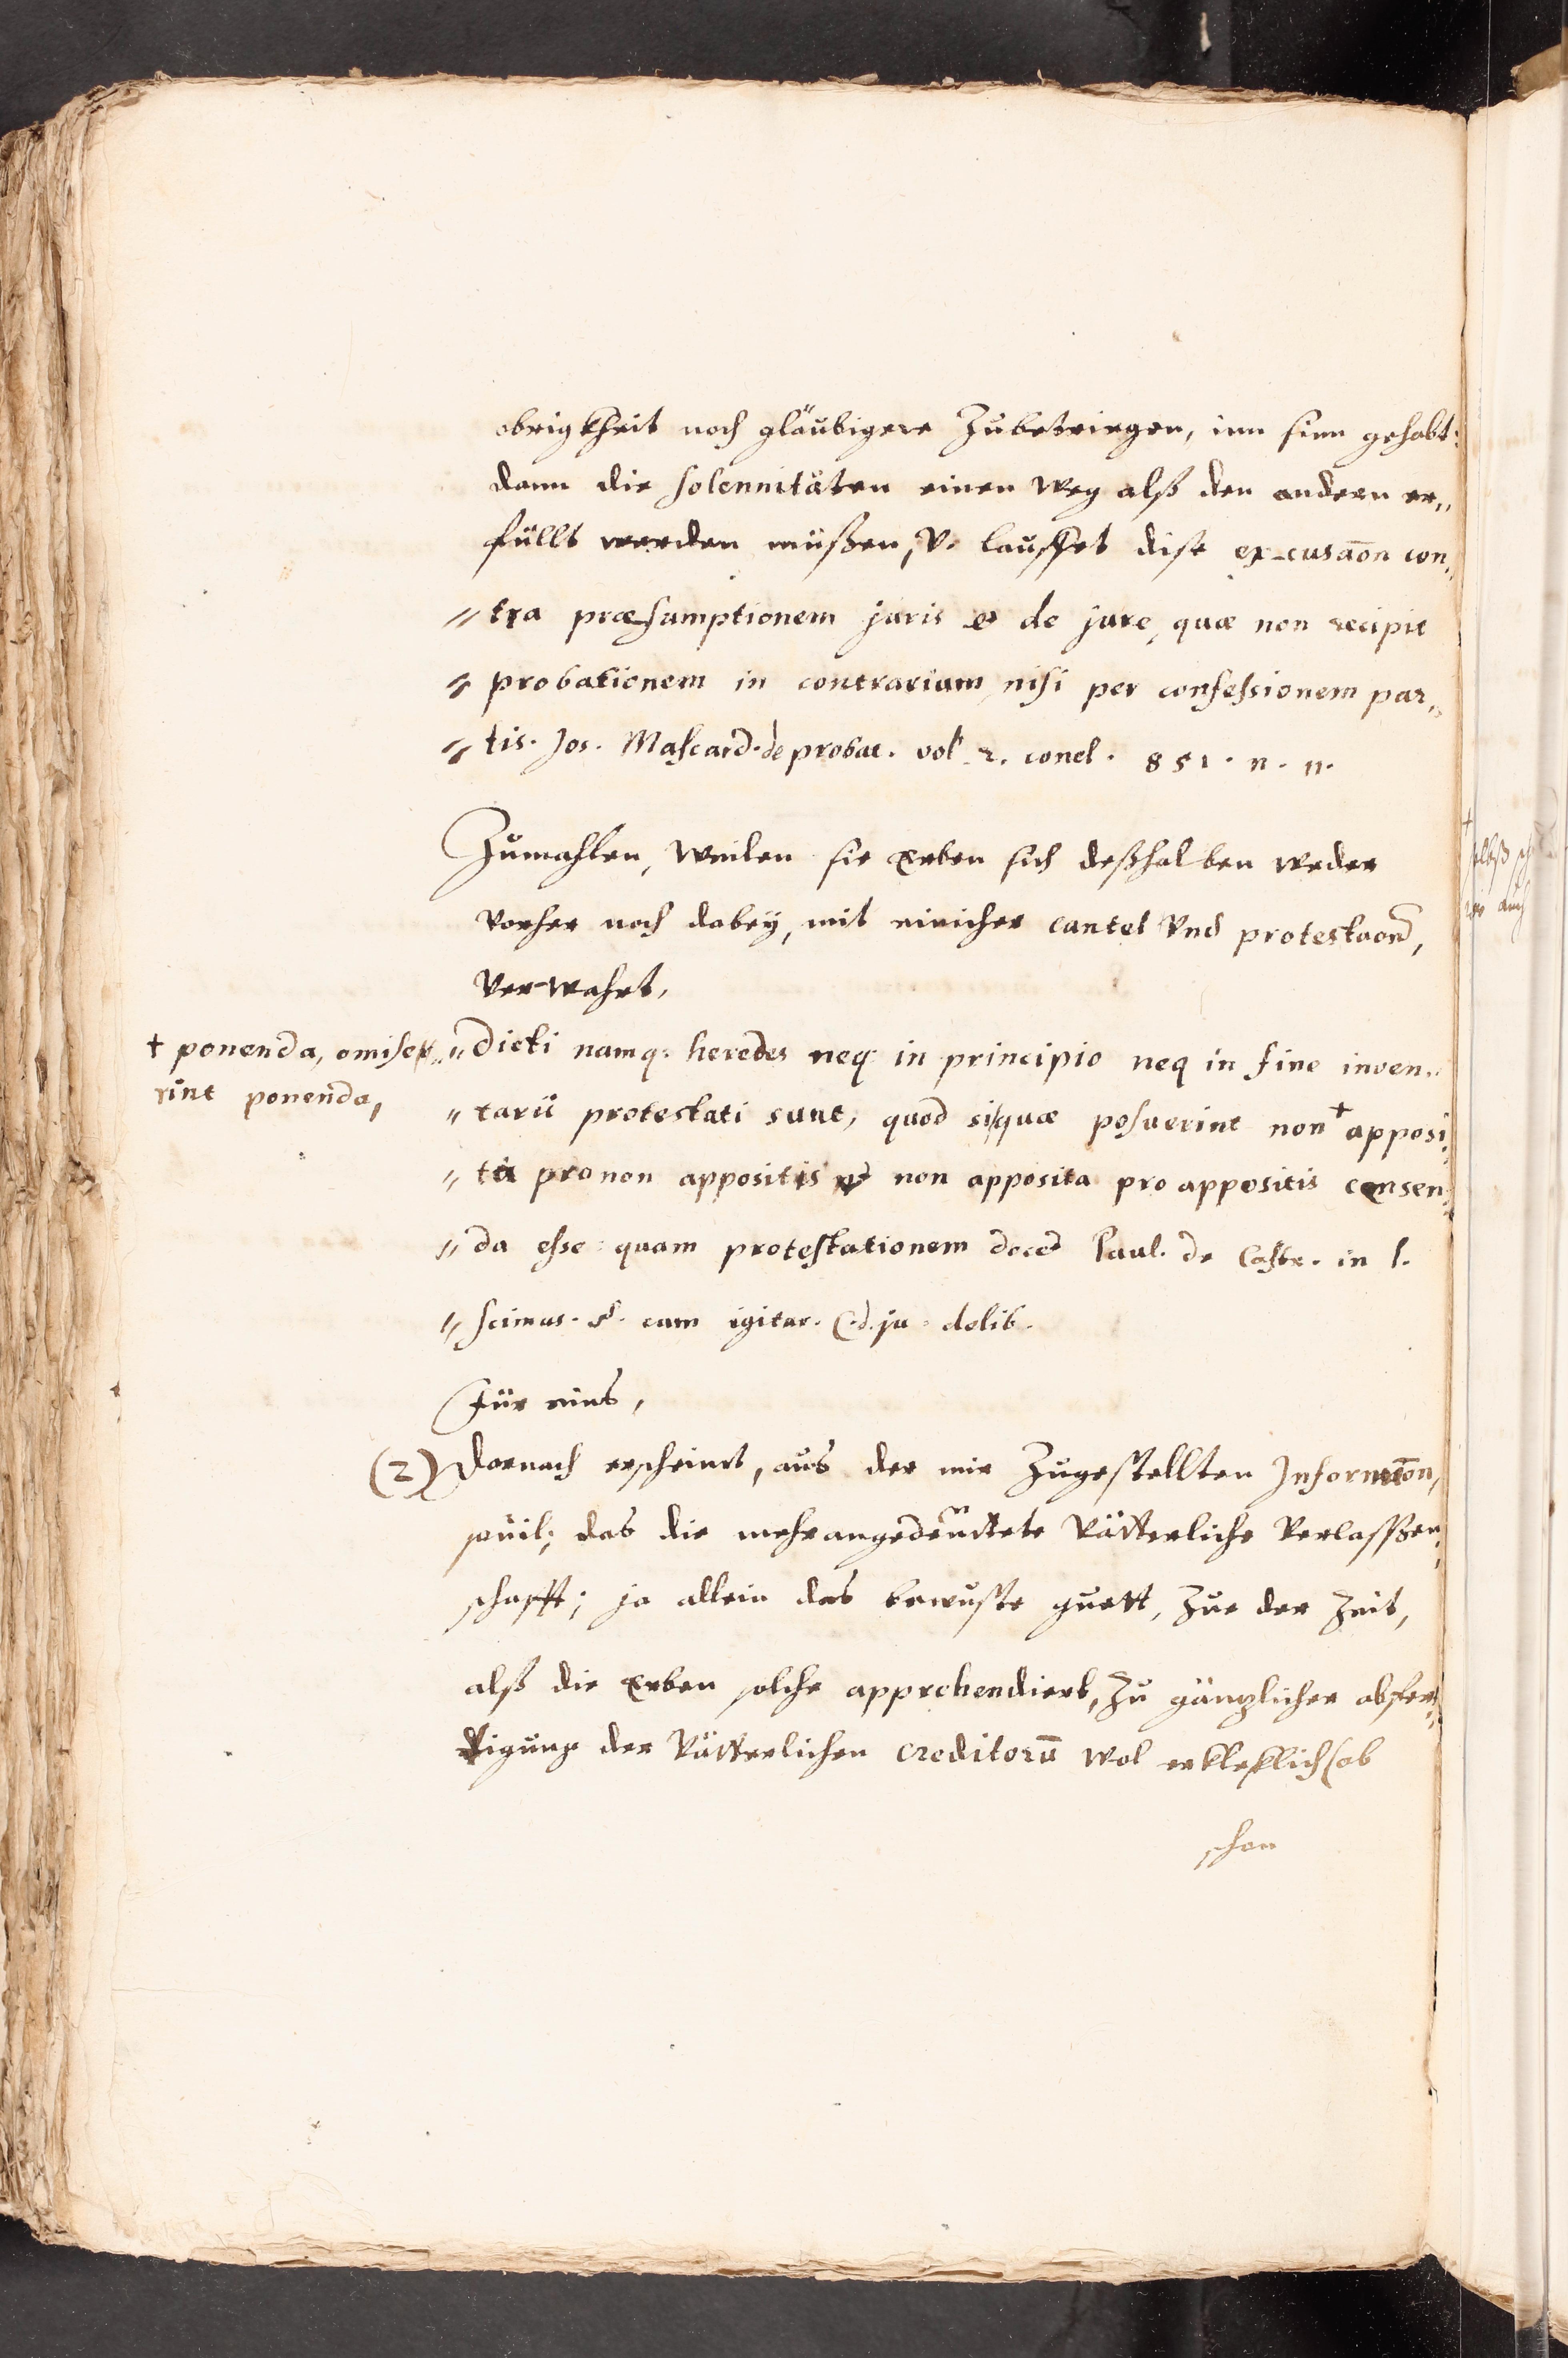 obrigkheit noch gläubigere Zubetriegen, inn sinn gehabt:
dann die solennitäten einen Weg alß den andern er„
füllt werden müßen, v. lauffet dise excusaōn con„
„ tra præsumptionem juris et de jure, quæ non recipit
„ probationem in contrarium, nisi per confessionem par„
„ tis. Jos. Mascard. de probat. vol. 2. concl. 851. n. 11.
Zumahlen, weilen sie Erben sich deßhalben weder
vorher noch dabey, mit einicher cautel vnd protestaon,
verwahrt,
„ Dicti namq. heredes neq. in principio neq in fine inven„
„ tarii protestati sunt, quod si quæ posuerint non † apposi„
„ ta pro non appositis et non apposita pro appositis censen„
„ da esse: quam protestationem docet Paul. de Castr. in l.
„ scimus. §. cum igitur. C. d. ju. delib.
† ponenda, omise„
rint ponenda,
Für eins,
(2) Darnach erscheint, aus der mir Zugestellten Informaōn,
souil; das die mehrangedeuttete Vätterliche Verlassen„
schafft; ja allein das bewuste guett, Zue der Zeit,
alß die Erben solche apprehendiert, Zu gäntzlicher abfer„
tigung der Vätterlichen creditorū wol erkleklich (ob
schon